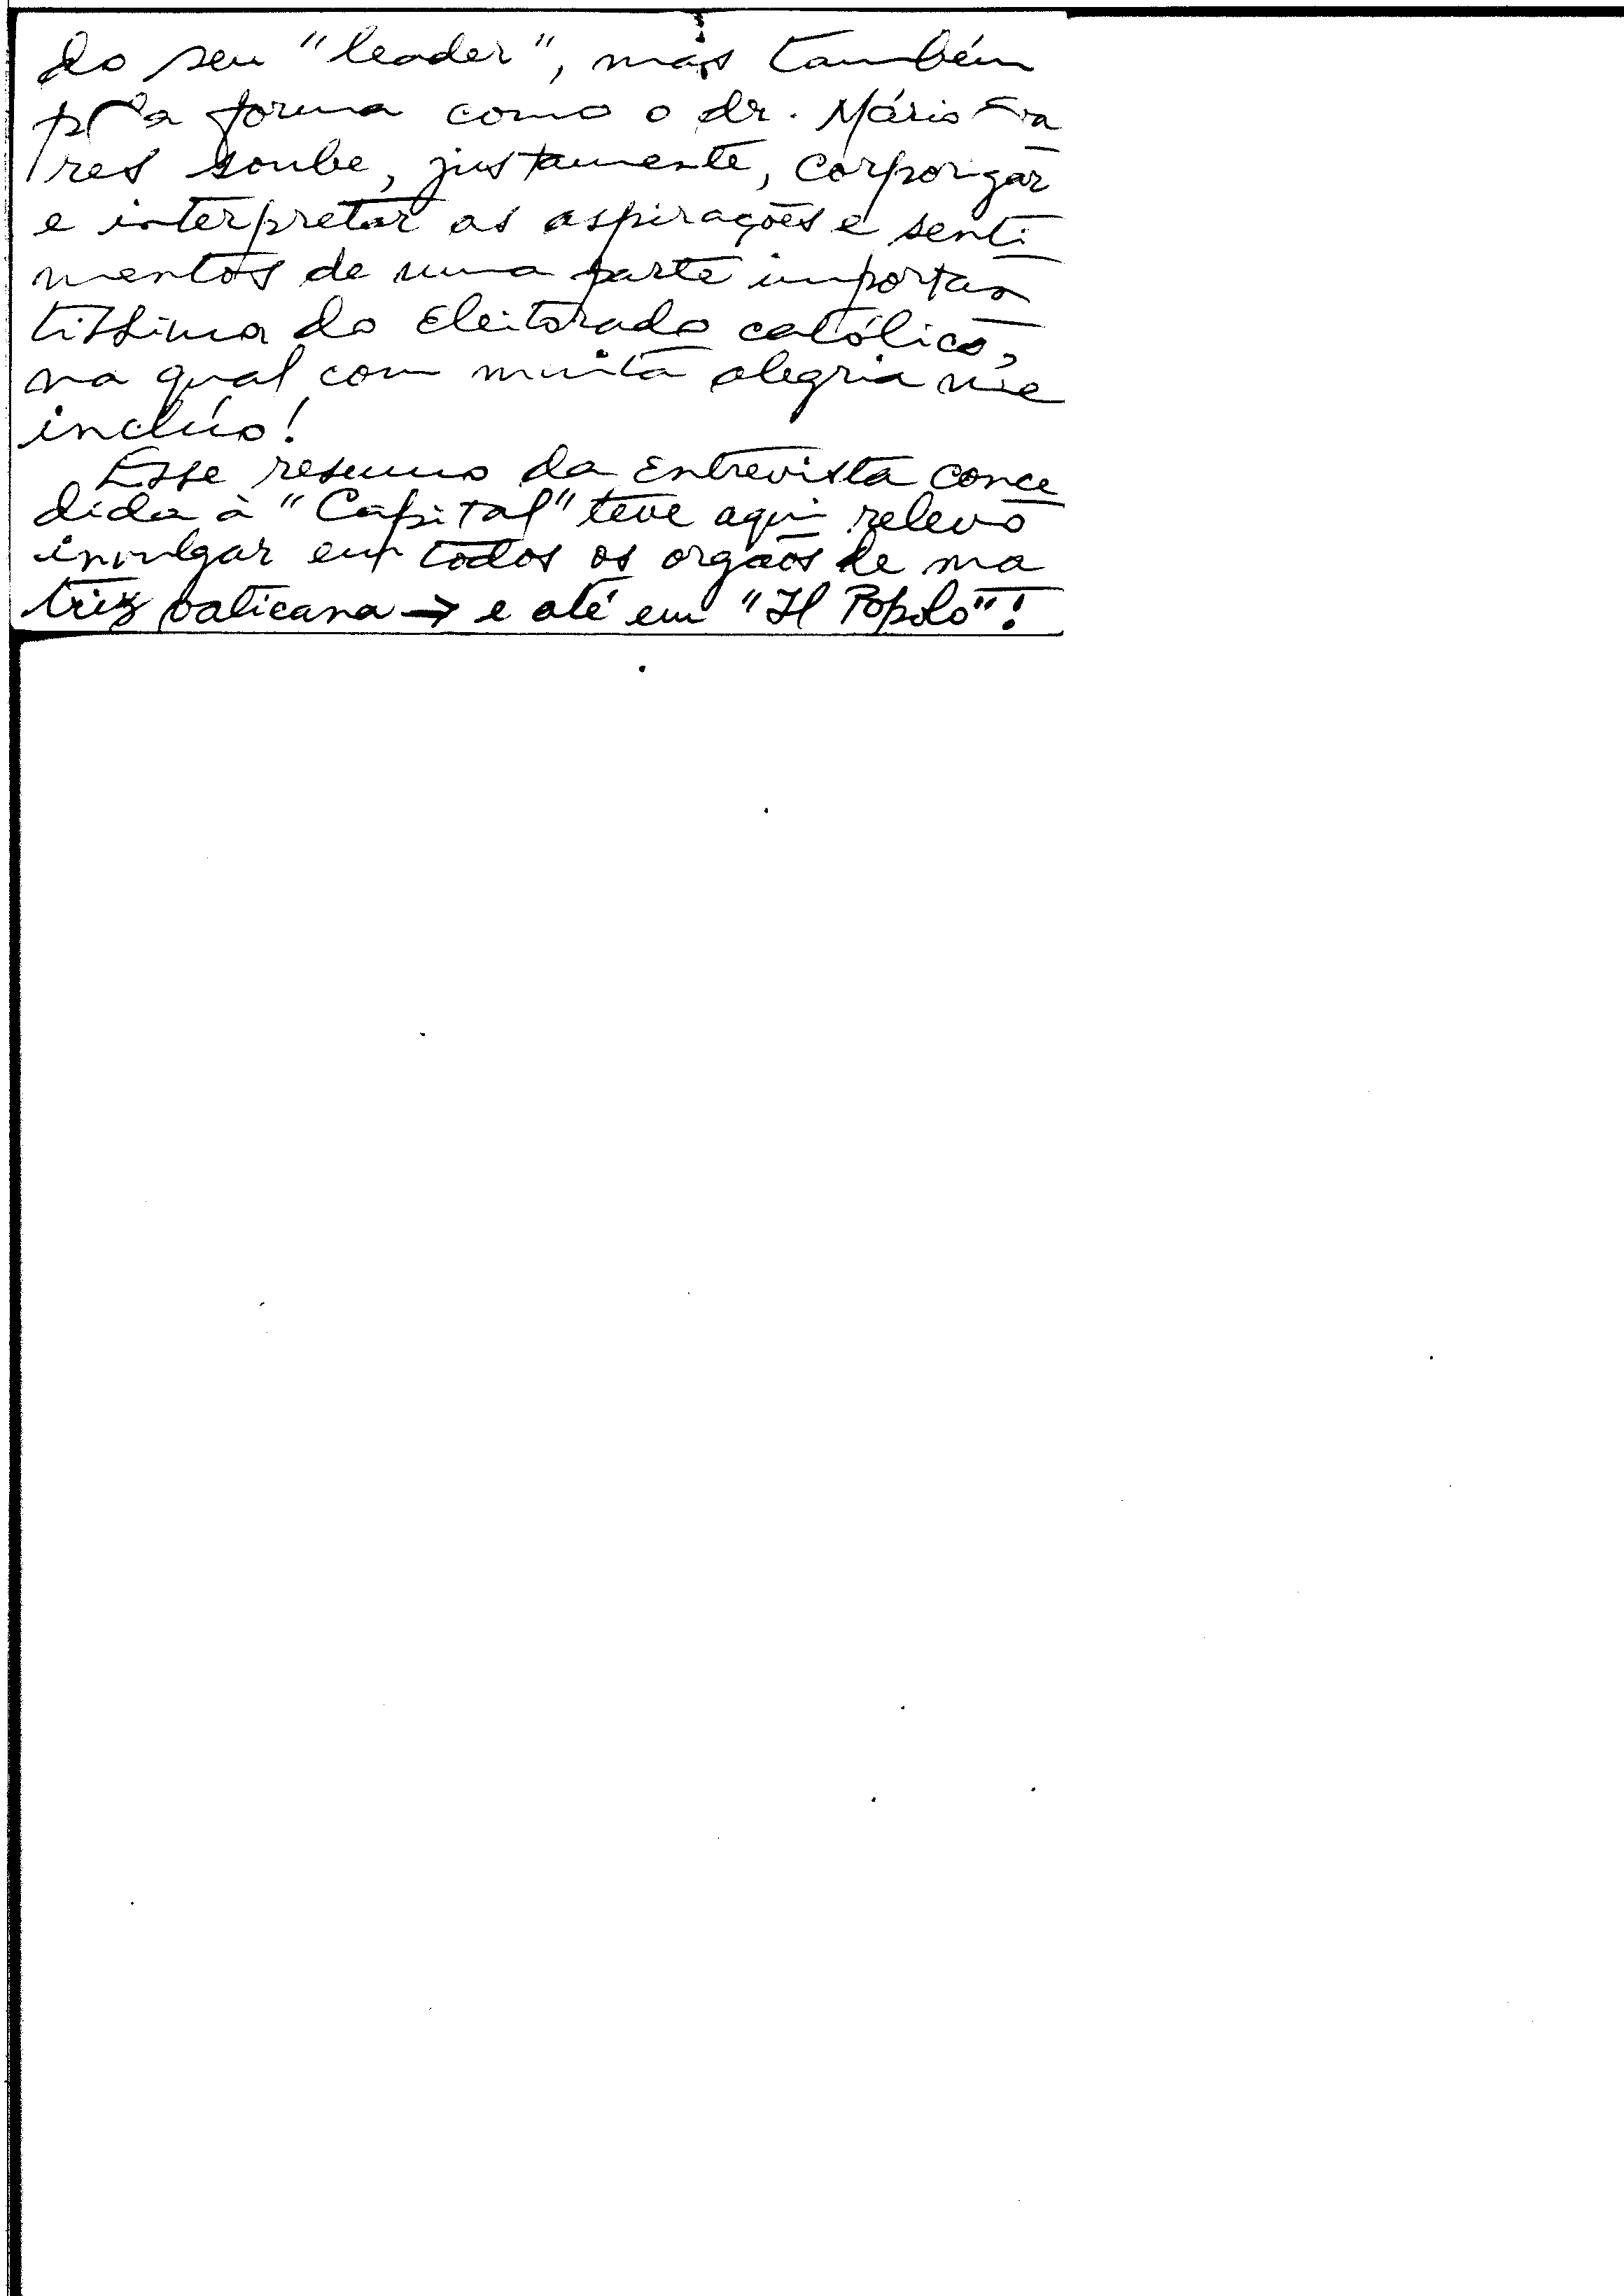 do seu "leader", mas também
pela forma como o dr. Mário
res soube, justamente, corporizar
e interpretar as aspirações e senti
mentos de uma parte importan
tissima do Eleitorado católico,
na qual com muita alegria me
inclúo!
Esse resumo da Entrevista conce
dida à "Capital" teve aqui relevo
invulgar em todos os orgãos de ma
triz vaticana → e até em "Il Popolo"!